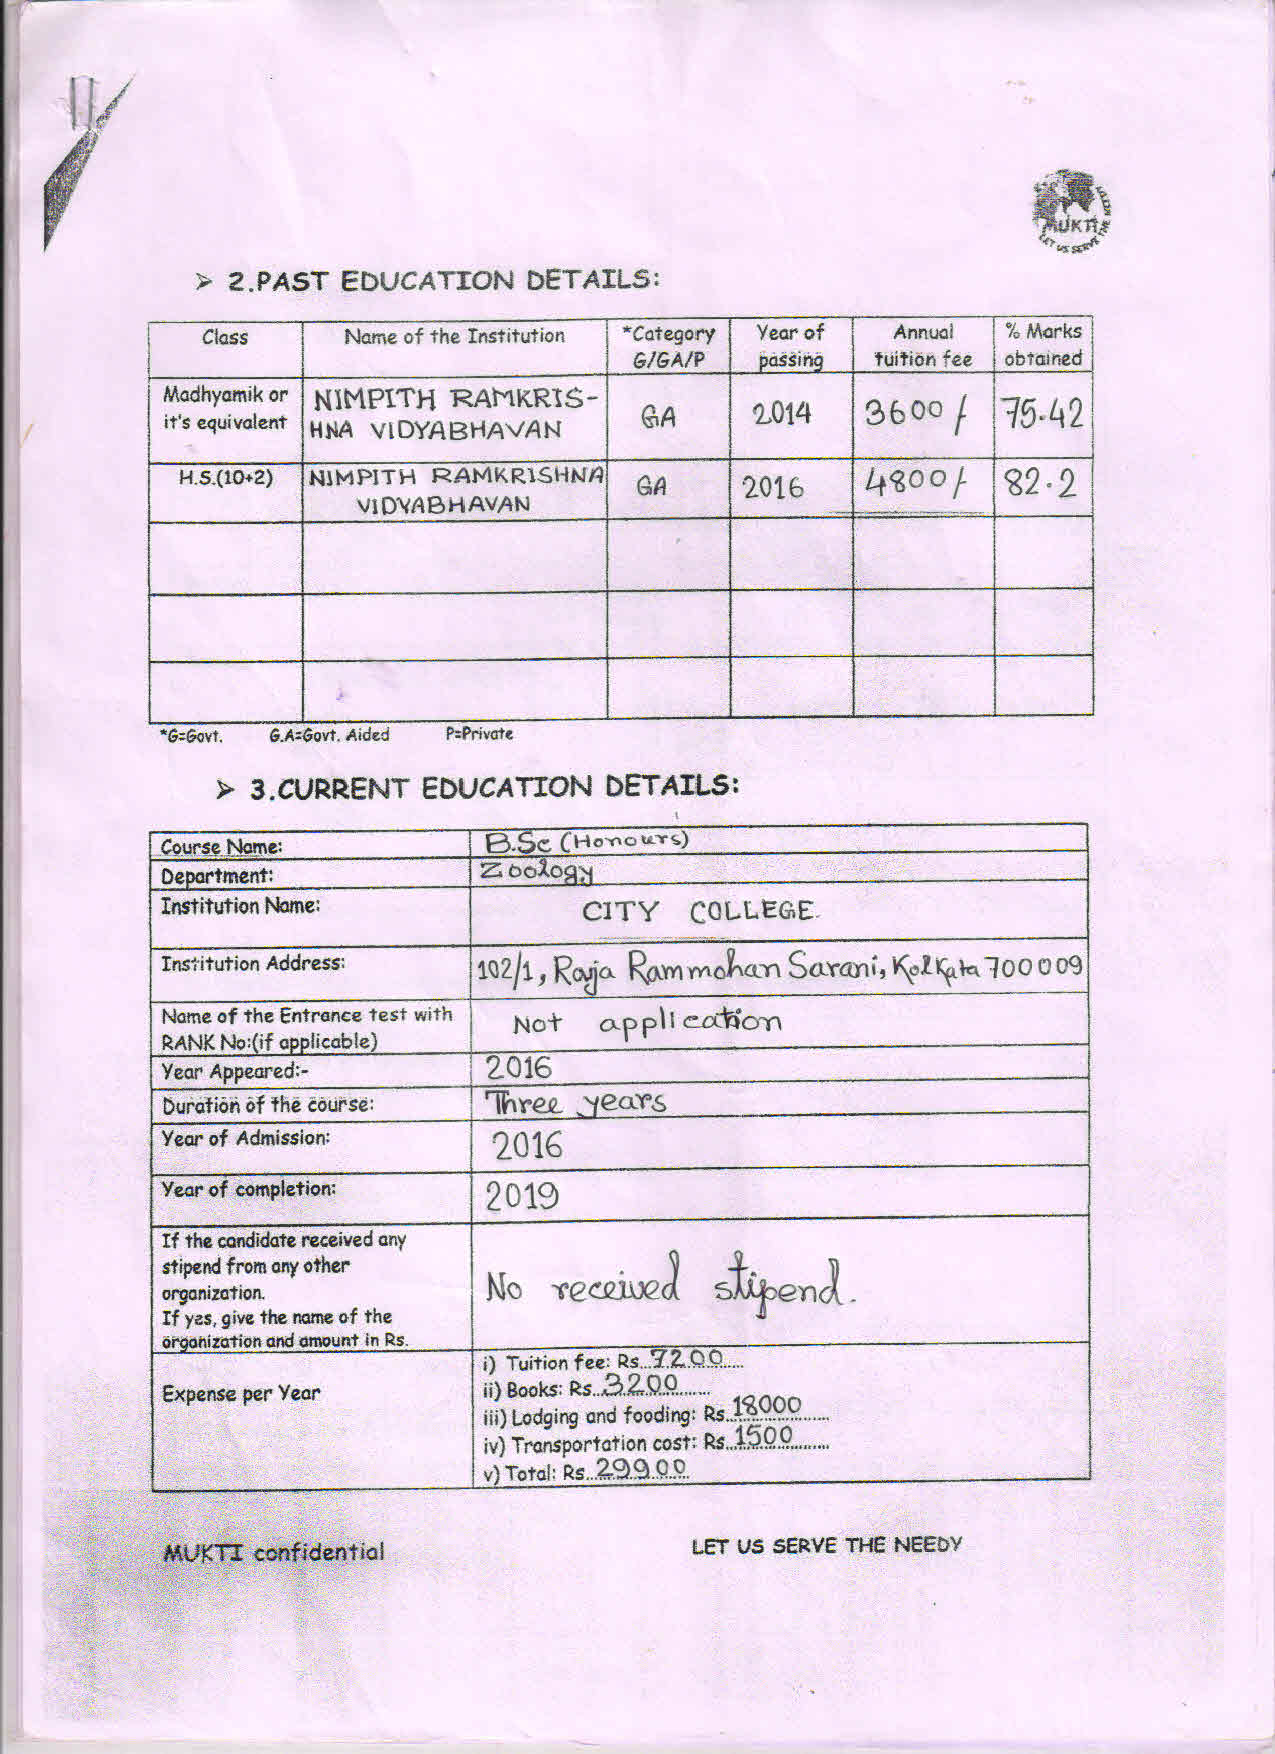 MUKTI
LET US SERVE THE NEEDY
➢ 2.PAST EDUCATION DETAILS:
Class Name of the Institution *Category Year of Annual % Marks
G/GA/P passing tuition fee obtained
Madhyamik or NIMPITH RAMKRIS- GA 2014 3600/ 75.42
it's equivalent HNA VIDYABHAVAN
H.S.(10+2) NIMPITH RAMKRISHNA GA 2016 4800/- 82.2
VIDYABHAVAN
*G=Govt. G.A=Govt. Aided P=Private
➢ 3.CURRENT EDUCATION DETAILS:
Course Name: B.Sc (Honours)
Department: Zoology
Institution Name: CITY COLLEGE.
Institution Address: 102/1, Raja Rammohan Sarani, Kolkata 700009
Name of the Entrance test with Not application
RANK No:(if applicable)
Year Appeared:- 2016
Duration of the course: Three years
Year of Admission: 2016
Year of completion: 2019
If the candidate received any
stipend from any other
organization. No received stipend.
If yes, give the name of the
organization and amount in Rs.
Expense per Year
i) Tuition fee: Rs...7200.....
ii) Books: Rs...3200........
iii) Lodging and fooding: Rs..18000.......
iv) Transportation cost: Rs..1500.......
v) Total: Rs...29900
MUKTI confidential LET US SERVE THE NEEDY